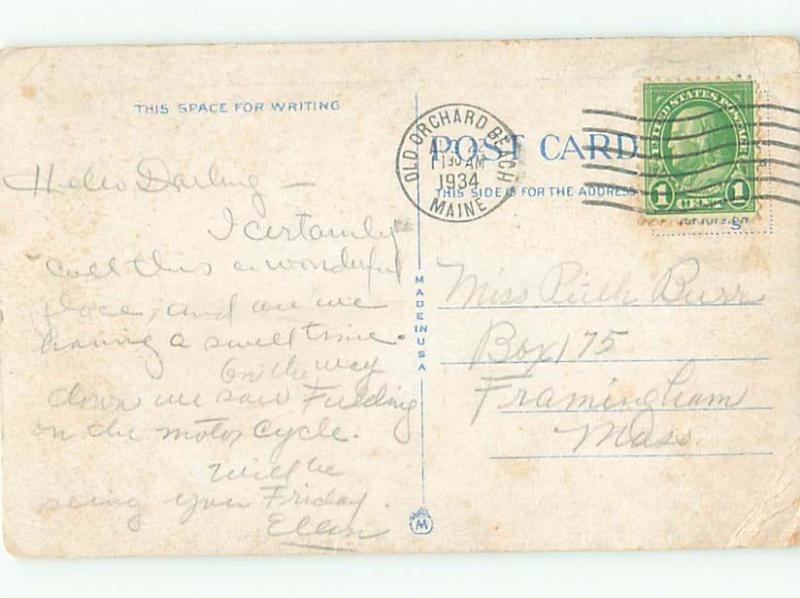 THIS SPACE FOR WRITING
Hello Darling —
I certainly
call this a wonderful
place, and are we
having a swell time.
On the way
down we saw
on the motorcycle.
Will be
seeing you Friday.
Ellen
MADE IN USA
M
OLD ORCHARD BEACH
11 30 AM
1934
MAINE
POST CARD
THIS SIDE IS FOR THE ADDRESS
UNITED STATES POSTAGE
1 CENT 1
Miss Ruth Burr
Box 175
Framingham
Mass.